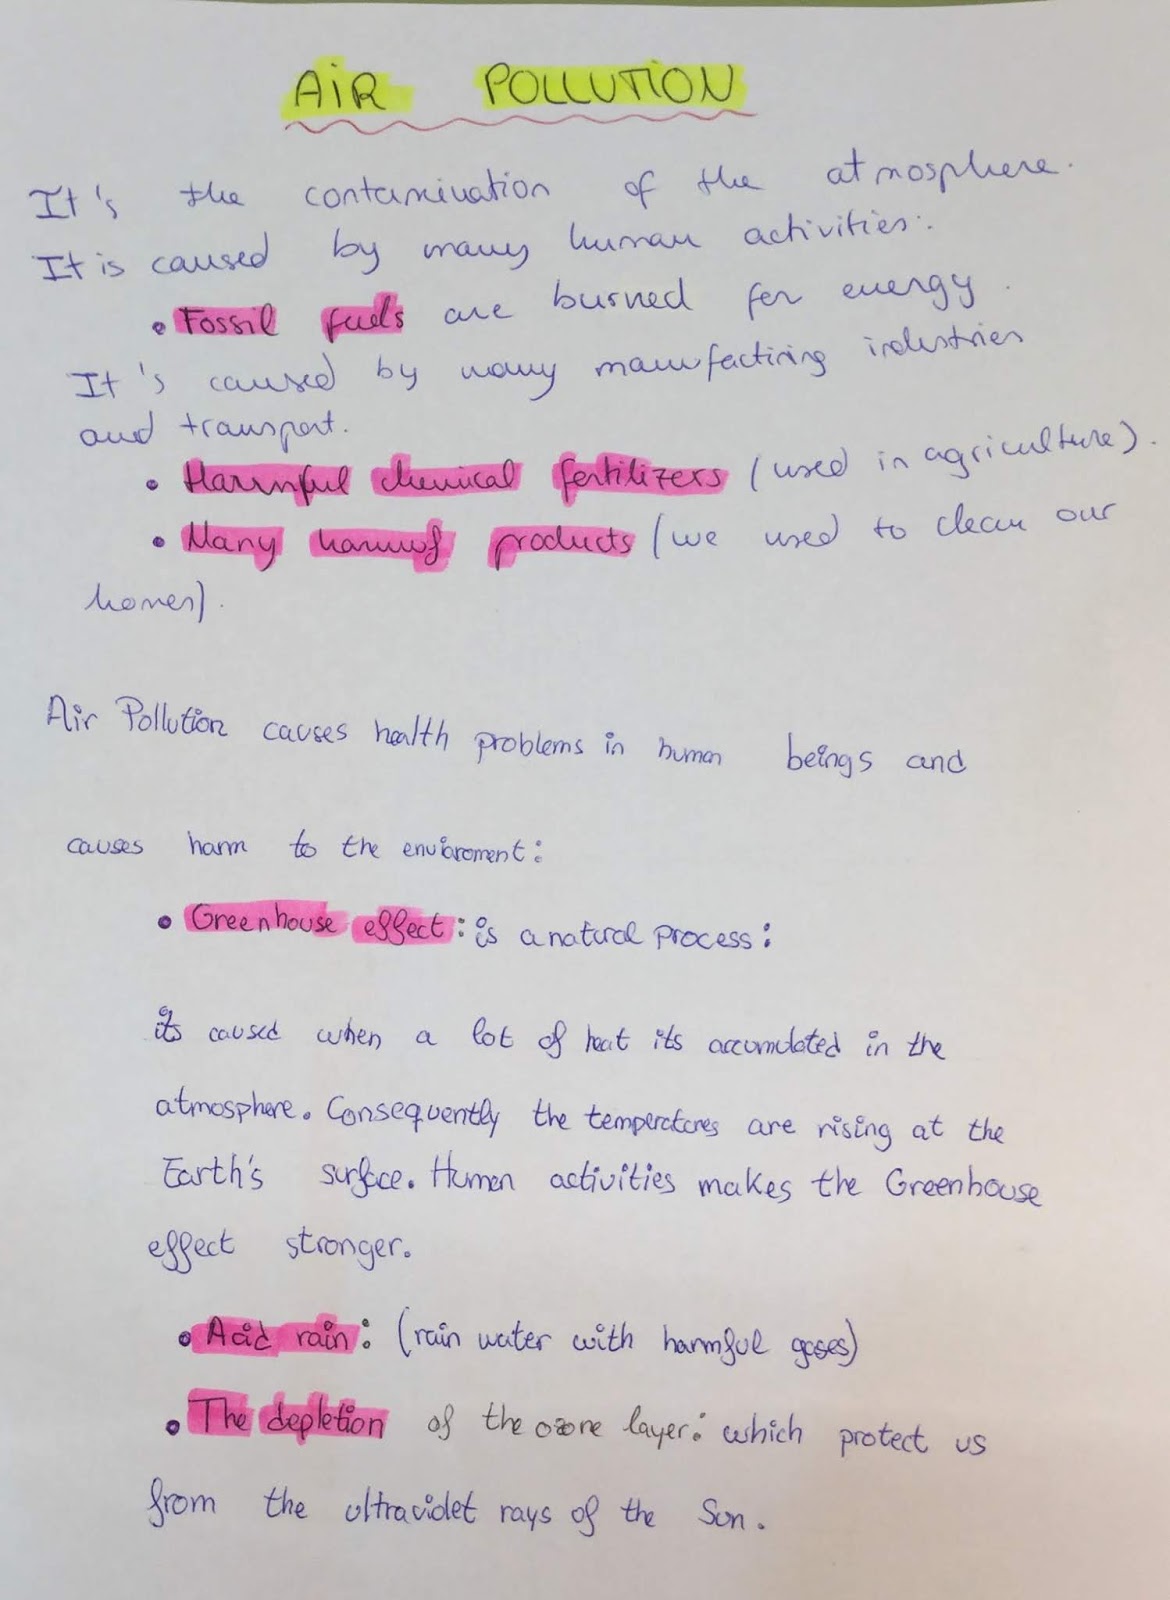 AIR POLLUTION
It's the contamination of the atmosphere.
It is caused by many human activities:
• Fossil fuels are burned for energy.
It's caused by many manufactiring industries
and transport.
• Harmful chemical fertilizers (used in agriculture).
• Many harmof products (we used to clean our
homes).
Air Pollution causes health problems in human beings and
causes harm to the enviaroment:
• Greenhouse effect: is a natural process:
its caused when a lot of heat its accumulated in the
atmosphere. Consequently the temperatures are rising at the
Earth's surface. Human activities makes the Greenhouse
effect stronger.
• Acid rain: (rain water with harmful gases)
• The depletion of the ozone layer: which protect us
from the ultraviolet rays of the Sun.